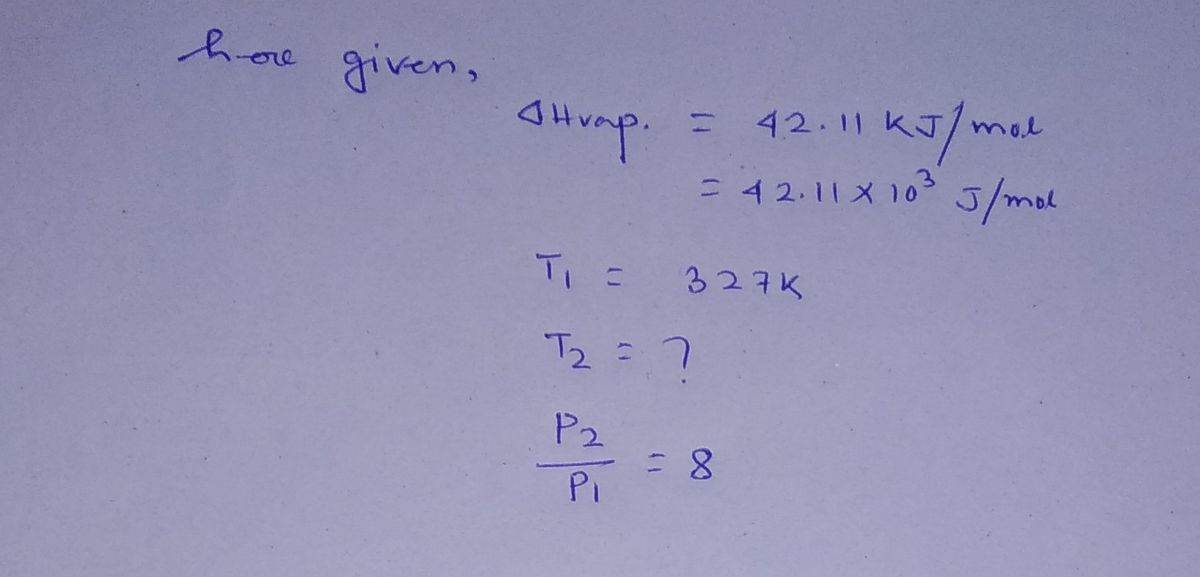 here given,
ΔHvap. = 42.11 KJ/mol
= 42.11 × 10³ J/mol
T₁ = 327K
T₂ = ?
P₂/P₁ = 8